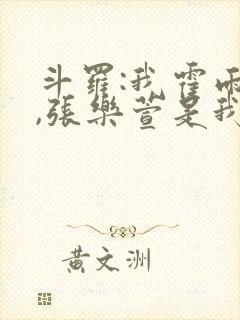 斗羅:我霍雨
,張樂萱是我
黃文洲